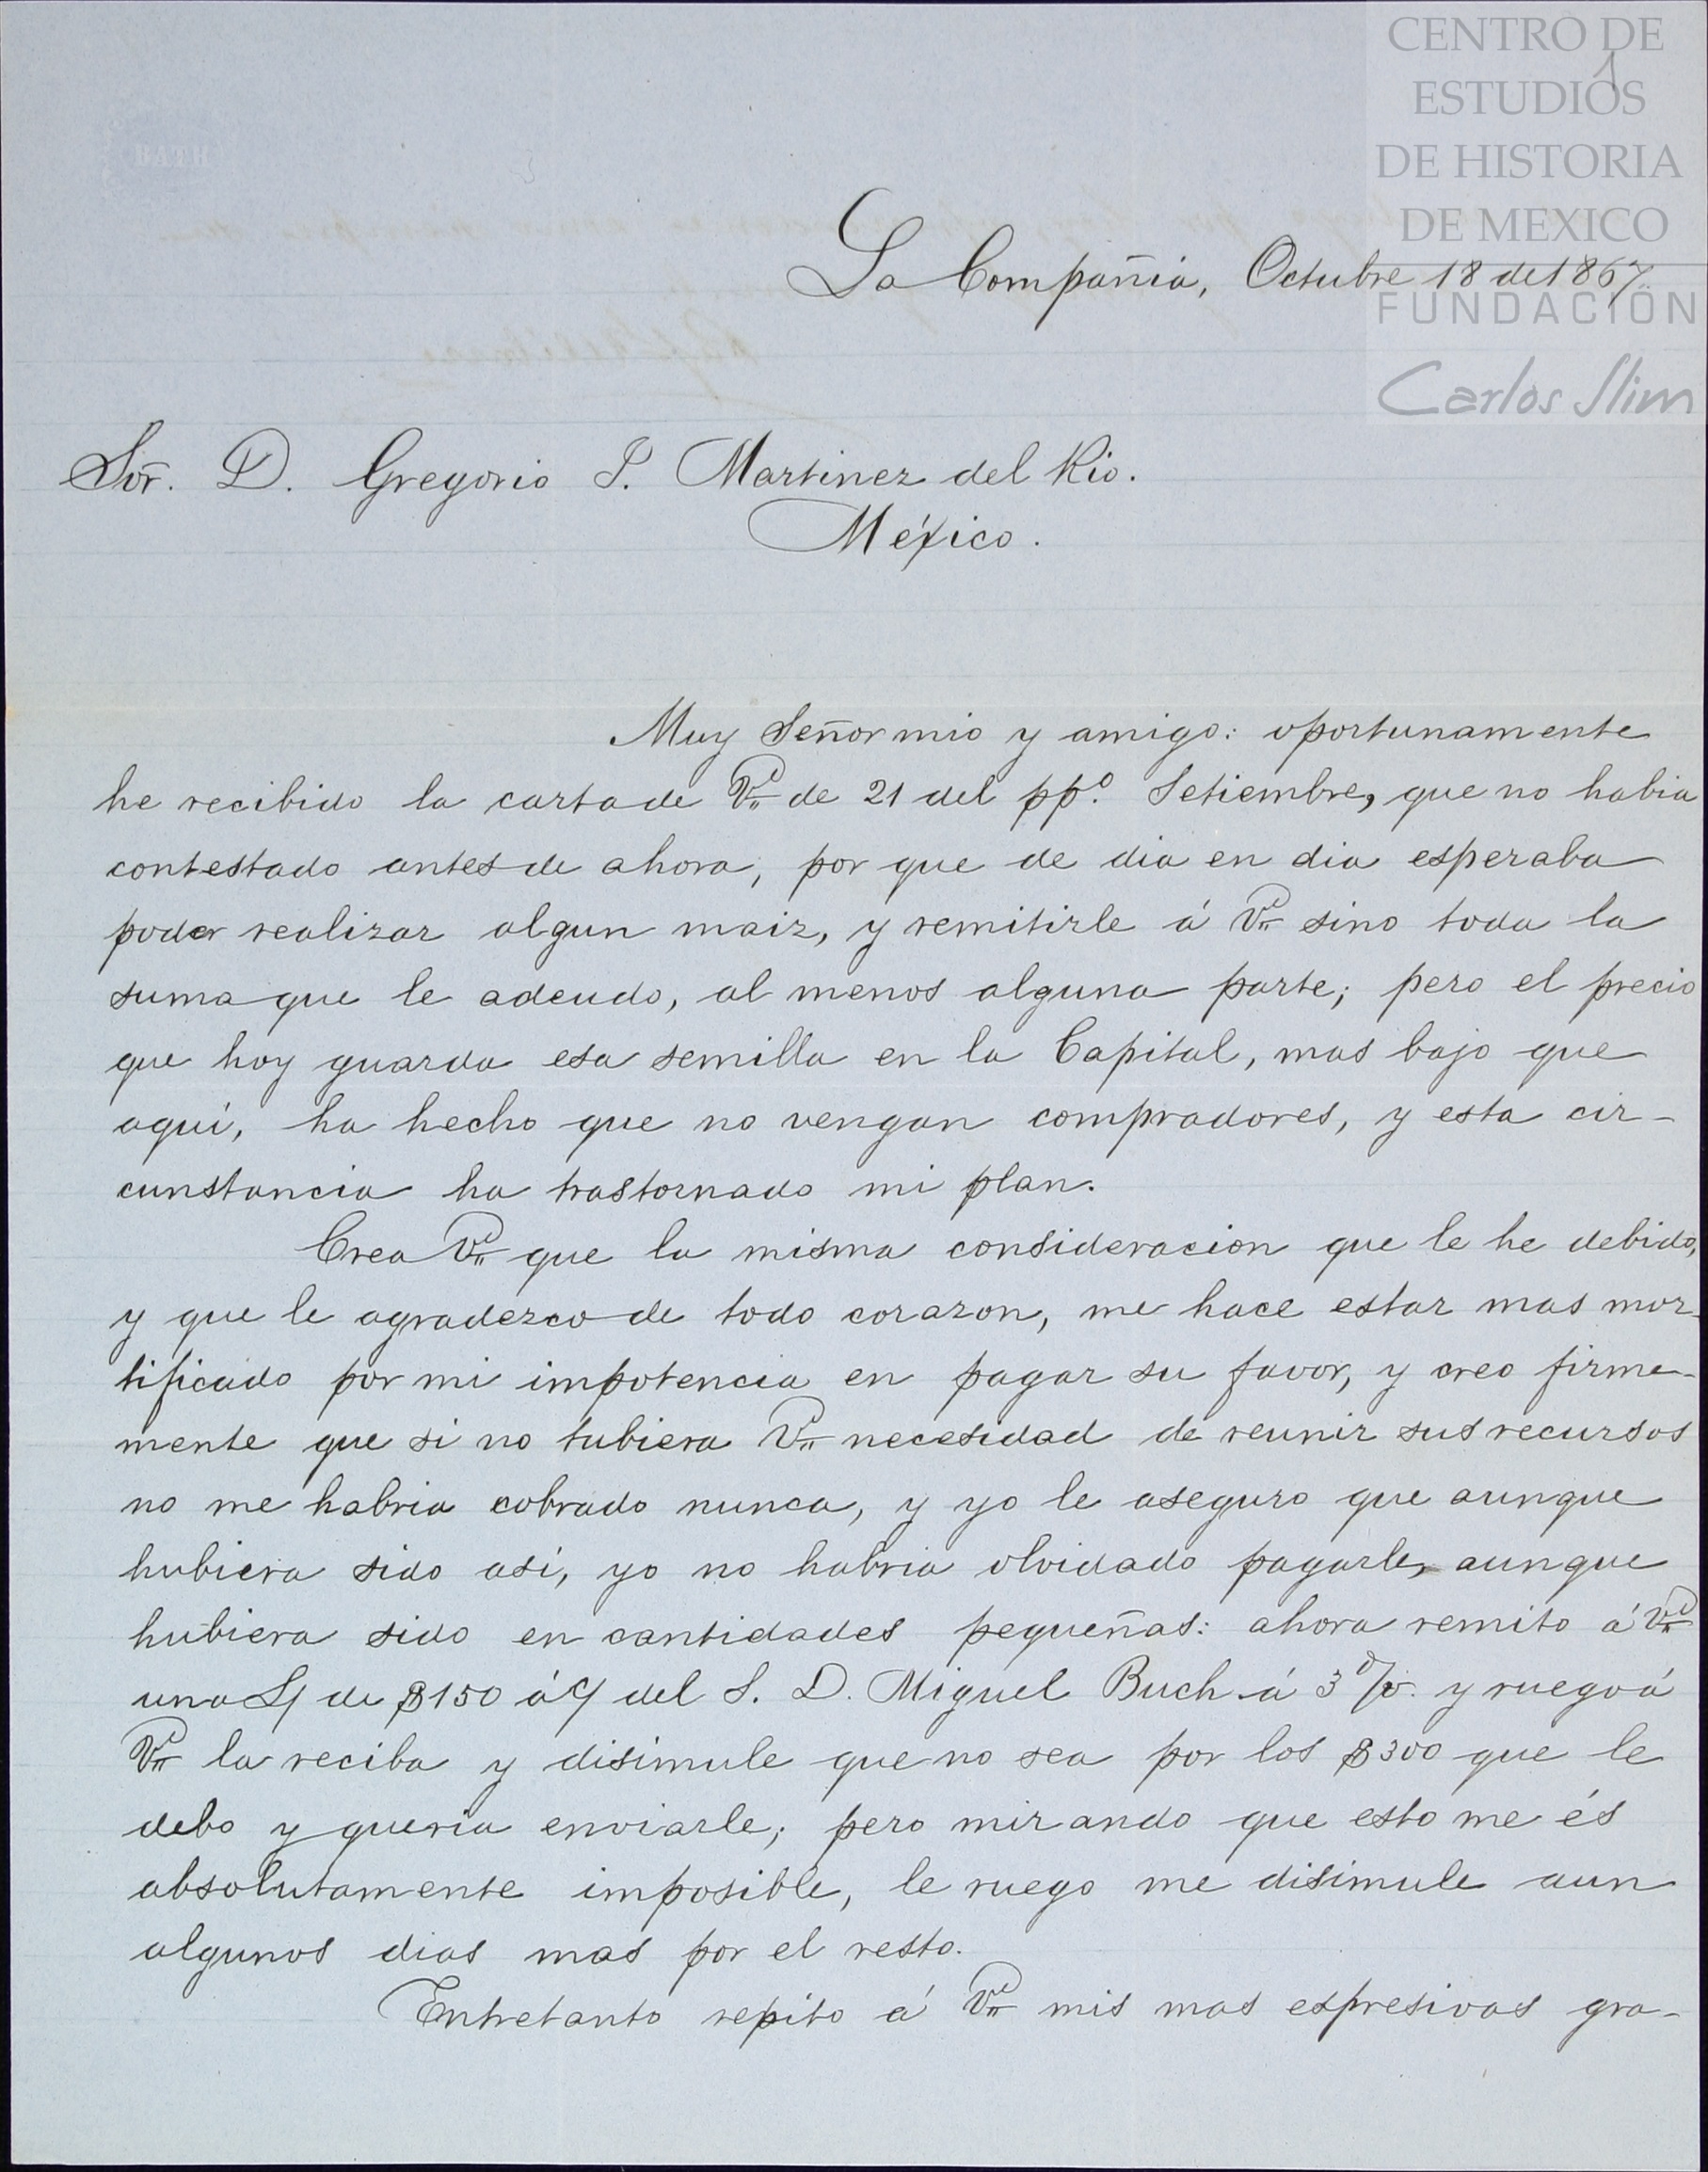 CENTRO DE
ESTUDIOS
DE HISTORIA
DE MEXICO
FUNDACIÓN
Carlos Slim
1
BATH
La Compañia, Octubre 18 de 1867.
Sor. D. Gregorio J. Martinez del Rio.
México.
Muy Señor mio y amigo: oportunamente
he recibido la carta de Vd. de 21 del pp.º Setiembre, que no habia
contestado antes de ahora, por que de dia en dia esperaba
poder realizar algun maiz, y remitirle á Vd. sino toda la
suma que le adeudo, al menos alguna parte; pero el precio
que hoy guarda esa semilla en la Capital, mas bajo que
aquí, ha hecho que no vengan compradores, y esta cir-
cunstancia ha trastornado mi plan.
Crea Vd. que la misma consideracion que le he debido,
y que le agradezco de todo corazon, me hace estar mas mor-
tificado por mi impotencia en pagar su favor, y creo firme-
mente que si no tubiera Vd. necesidad de reunir sus recursos
no me habria cobrado nunca, y yo le aseguro que aunque
hubiera sido asi, yo no habria olvidado pagarle, aunque
hubiera sido en cantidades pequeñas: ahora remito á Vd.
una L/ de $150 á c/ del S. D. Miguel Buch á 3 d/v. y ruego á
Vd. la reciba y disimule que no sea por los $300 que le
debo y queria enviarle; pero mirando que esto me és
absolutamente imposible, le ruego me disimule aun
algunos dias mas por el resto.
Entretanto repito á Vd. mis mas espresivas gra-